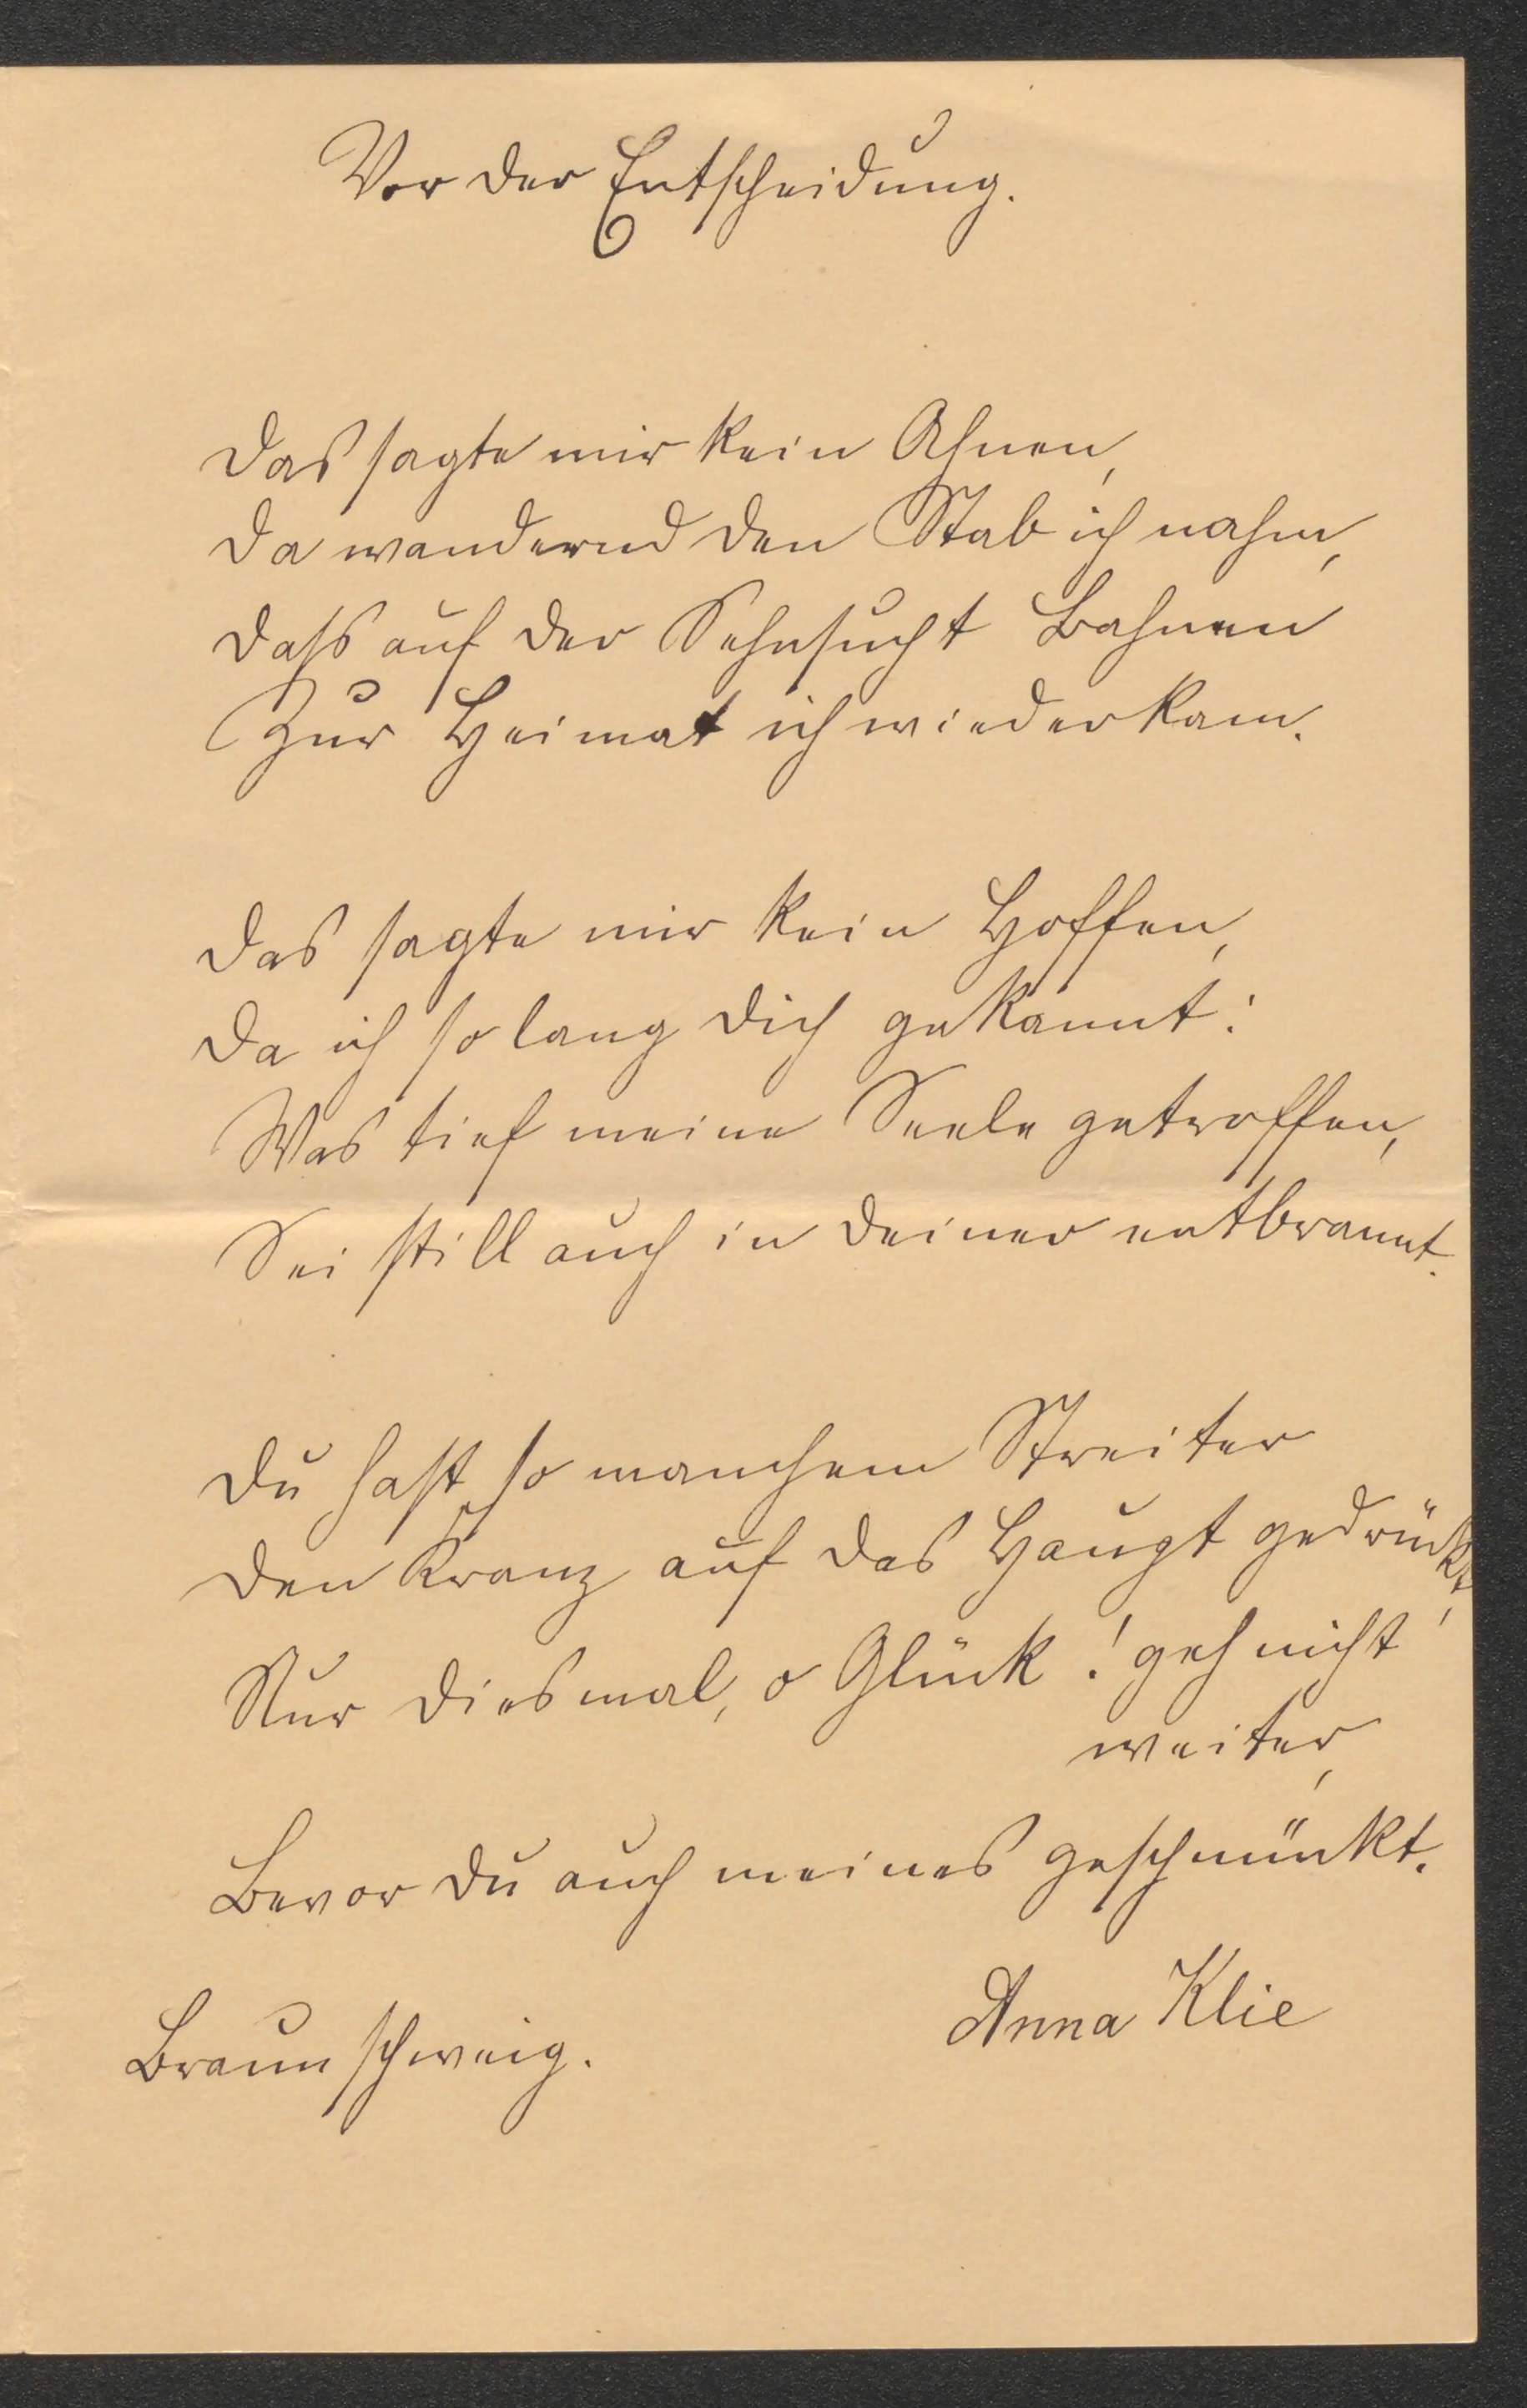 Vor der Entscheidung.
Das sagte mir kein Ahnen,
Da wandernd den Stab ich nahm,
Dass auf der Sehnsucht Bahnen
Zur Heimat ich wiederkam.
Das sagte mir kein Hoffen,
Da ich so lang dich gekannt:
Was tief meine Seele getroffen,
Sei still auch in deiner entbrannt.
Du hast so manchem Streiter
Den Kranz auf das Haupt gedrückt,
Nur diesmal, o Glück! geh nicht
weiter,
Bevor du auch meines geschmückt.
Anna Klie
Braunschweig.